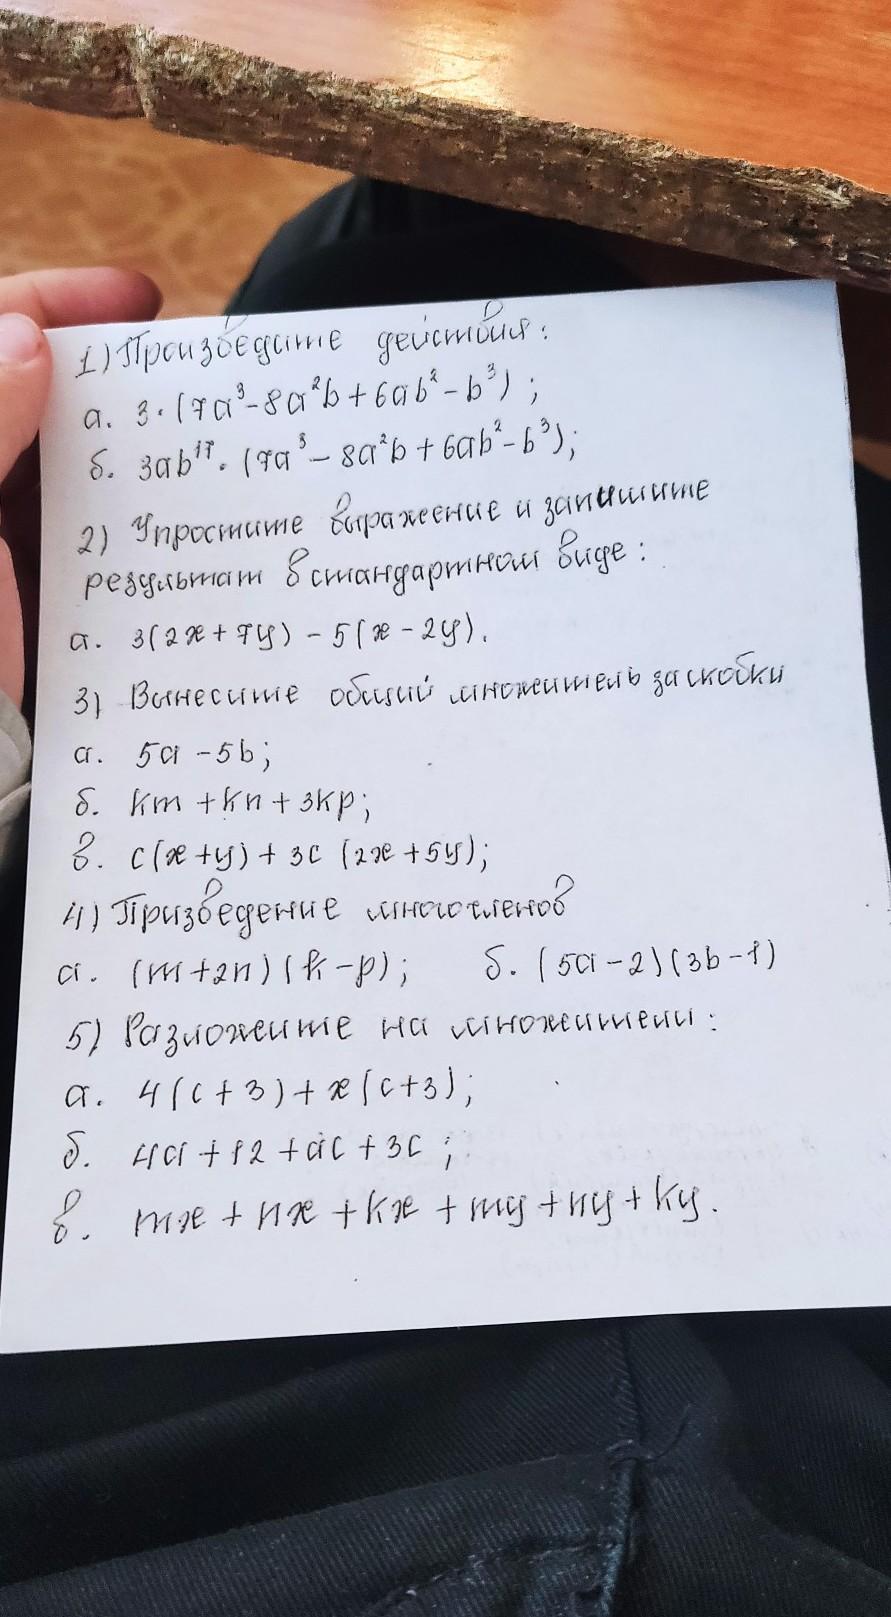 1) Произведите действия:
а. 3·(7a³-8a²b+6ab²-b³);
б. 3ab¹⁷·(7a³-8a²b+6ab²-b³);
2) Упростите выражение и запишите
результат в стандартном виде:
а. 3(2x+7y)-5(x-2y).
3) Вынесите общий множитель за скобки
а. 5a-5b;
б. km+kn+3kp;
в. c(x+y)+3c(2x+5y);
4) Призведение многочленов
а. (m+2n)(k-p); б. (5a-2)(3b-1)
5) Разложите на множители:
а. 4(c+3)+x(c+3);
б. 4a+12+ac+3c;
в. mx+nx+kx+my+ny+ky.